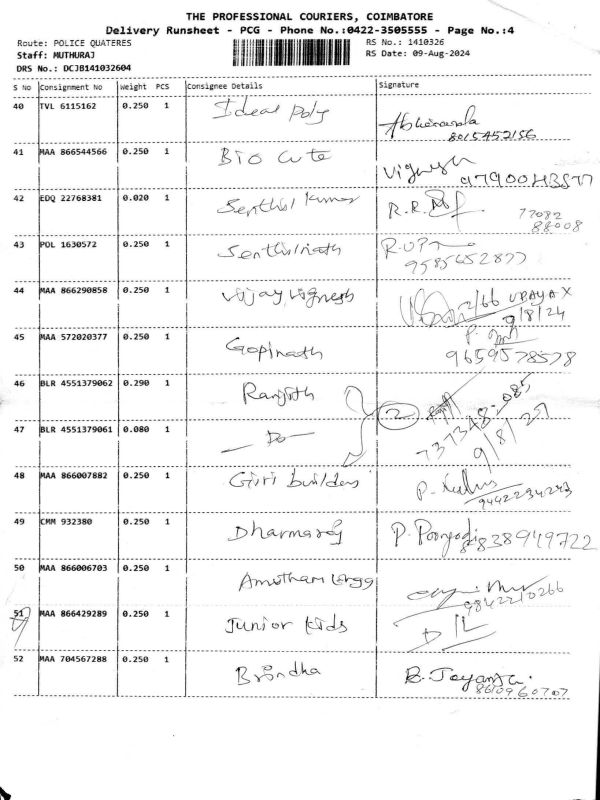 THE PROFESSIONAL COURIERS, COIMBATORE
Delivery Runsheet - PCG - Phone No.:0422-3505555 - Page No.:4
Route: POLICE QUATERES
RS No.: 1410326
Staff: MUTHURAJ
RS Date: 09-Aug-2024
DRS No.: DCJB141032604
S No Consignment No Weight PCS Consignee Details Signature
40 TVL 6115162 0.250 1 Ideal Poly
8015452156
41 MAA 866544566 0.250 1 Bio Cute Vignesh
42 EDQ 22768381 0.020 1 Senthil Kumar R.R.
77082
88008
43 POL 1630572 0.250 1 Senthilnath
9585652877
44 MAA 866290858 0.250 1 Vijay Vignesh 2/66 UDAYA X
9/8/24
45 MAA 572020377 0.250 1 Gopinath P.
9659578578
46 BLR 4551379062 0.290 1 Ranjith 2
737348.085
47 BLR 4551379061 0.080 1 — Do — 9/8/24
48 MAA 866007882 0.250 1 Giri builders P.
9442234243
49 CMM 932380 0.250 1 Dharmaraj P.
838949722
50 MAA 866006703 0.250 1 Amutham
9842210266
51 MAA 866429289 0.250 1 Junior Kids D/L
52 MAA 704567288 0.250 1 Brindha B. Jayanthi
8610960707